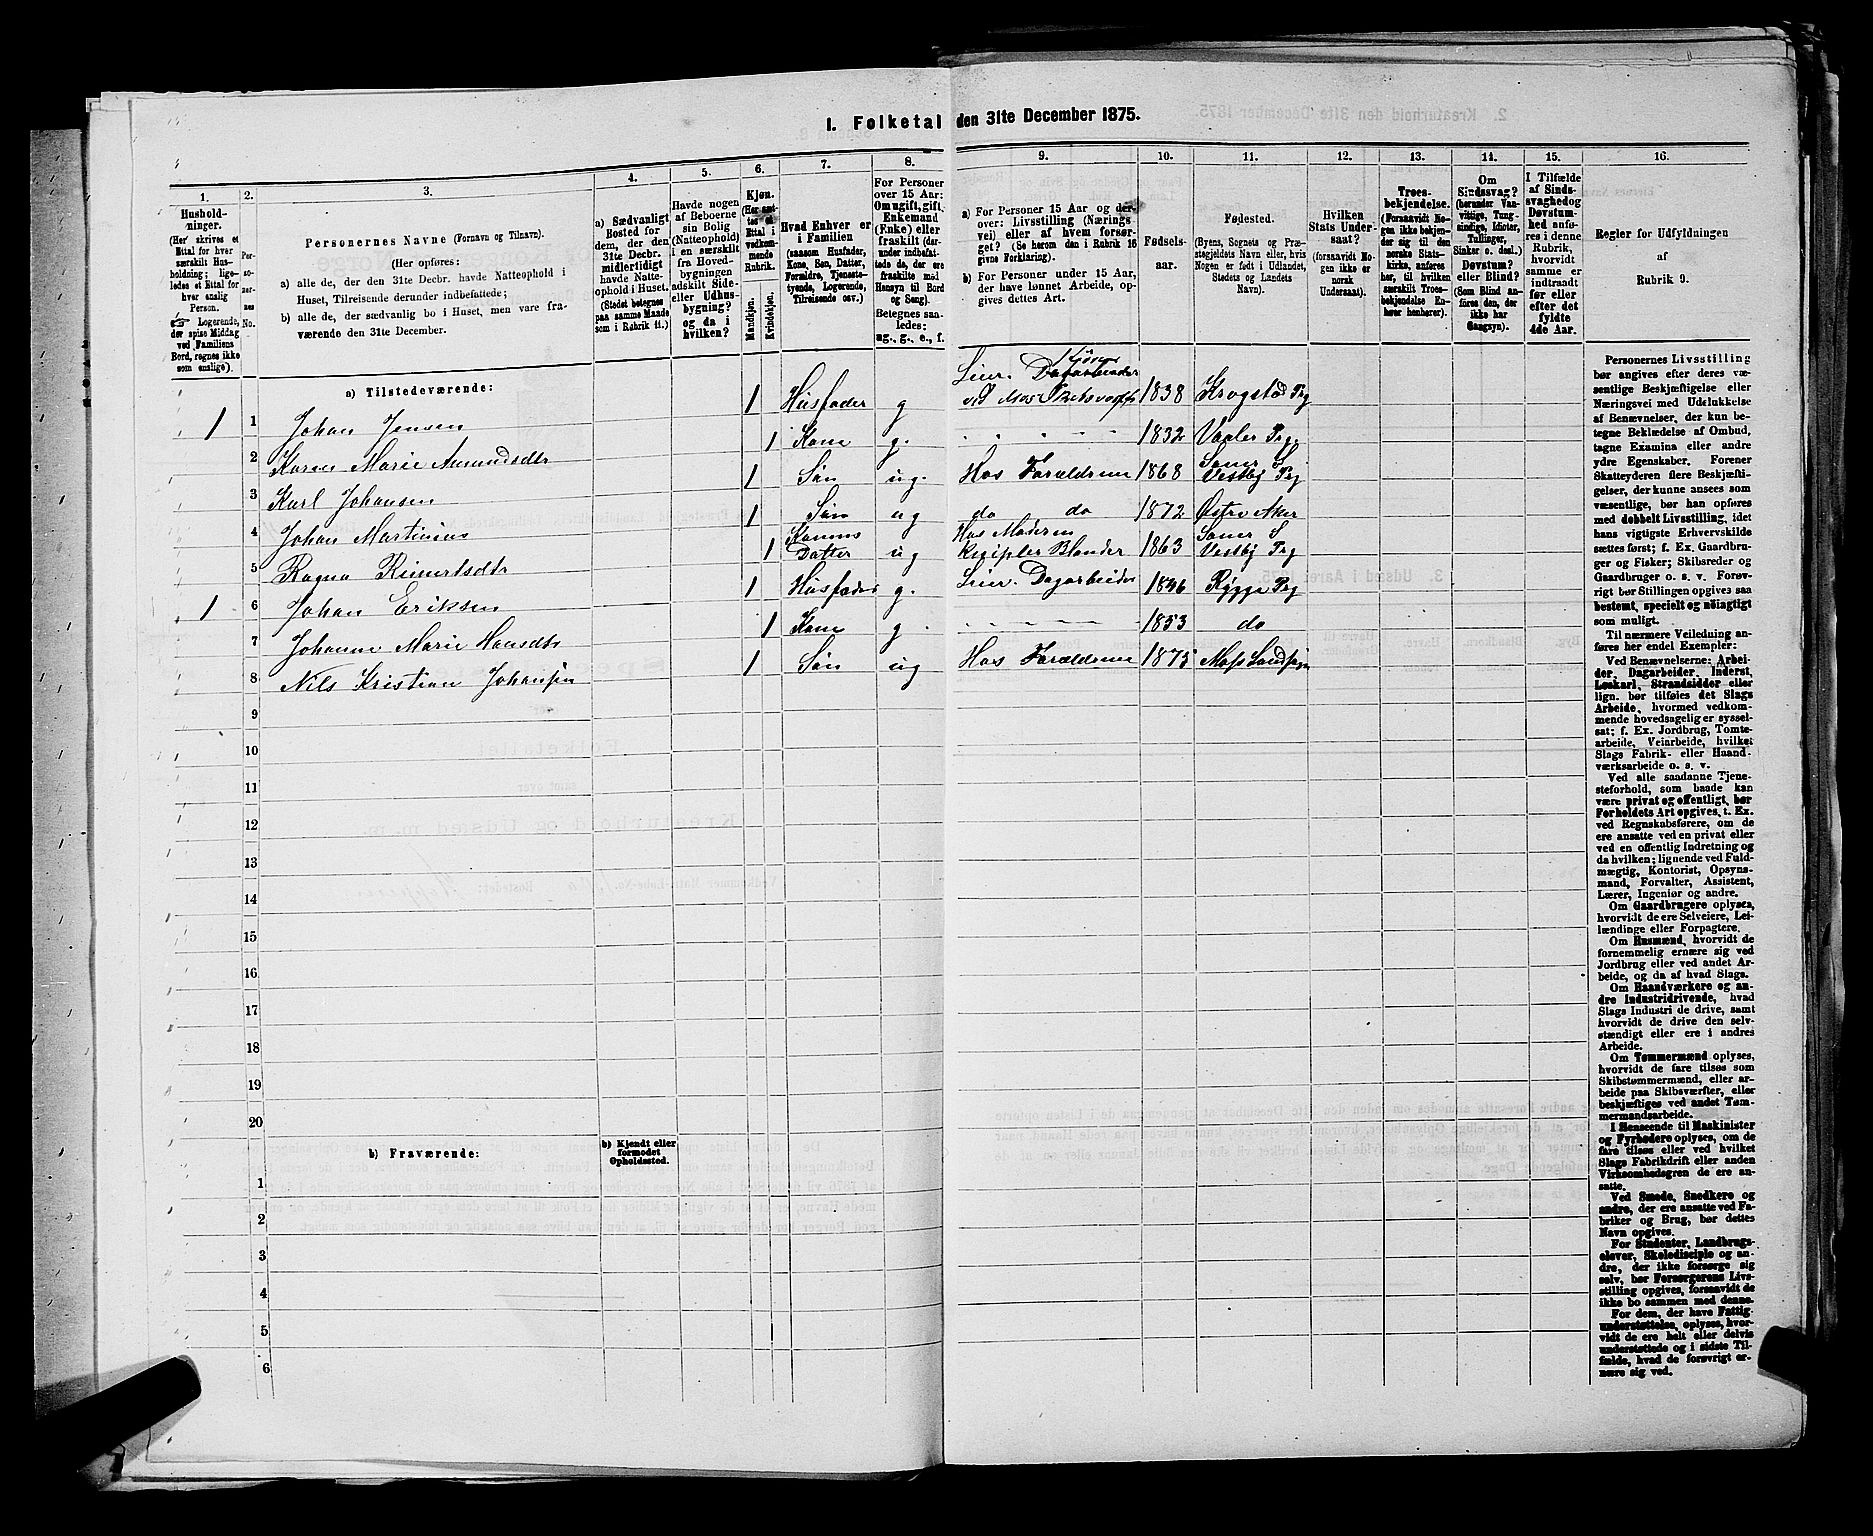 1. Folketal den 31te December 1875.
1.
Hushold-
ninger.
(Her skrives et
Ettal for hver
særskilt Hus-
holdning; lige-
ledes et Ettal for
hver enslig
Person.
Logerende,
der spise Middag
ved Familiens
Bord, regnes ikke
som enslige).
2.
Per-
so-
ner-
nes
No.
3.
Personernes Navne (Fornavn og Tilnavn).
(Her opføres:
a) alle de, der den 31te Decbr. havde Natteophold i
Huset, Tilreisende derunder indbefattede;
b) alle de, der sædvanlig bo i Huset, men vare fra-
værende den 31te December.
4.
a) Sædvanligt
Bosted for
dem, der den
31te Decbr.
midlertidigt
havde Natte-
ophold i Huset.
(Stedet betegnes
paa samme Maade
som i Rubrik 11.)
5.
Havde nogen
af Beboerne
sin Bolig
(Natteophold)
i en særskilt
fra Hoved-
bygningen
adskilt Side-
eller Udhus-
bygning?
og da i
hvilken?
6.
Kjøn.
(Her sæt-
tes et
Ettal i
vedkom-
mende
Rubrik.
Mandkjøn.
Kvindekjøn.
7.
Hvad Enhver er
i Familien
(saasom Husfader,
Kone, Søn, Datter,
Forældre, Tjeneste-
tyende, Logerende,
Tilreisende osv.)
8.
For Personer
over 15 Aar:
Om ugift, gift,
Enkemand
(Enke) eller
fraskilt (der-
under indbefat-
tede de, der ere
fraskilte med
Hensyn til Bord
og Seng).
Betegnes saa-
ledes:
ug., g., e., f.
9.
a) For Personer 15 Aar og der-
over: Livsstilling (Nærings
vei) eller af hvem forsør-
get? (Se herom den i Rubrik 16
givne Forklaring).
b) For Personer under 15 Aar,
der have lønnet Arbeide, op-
gives dettes Art.
10.
Fødsels-
aar.
11.
Fødested.
(Byens, Sognets og Præ-
stegjeldets Navn eller, hvis
Nogen er født i Udlandet,
Stedets og Landets
Navn).
12.
Hvilken
Stats Under-
saat?
(forsaavidt No-
gen ikke er
norsk
Undersaat).
13.
Troes-
bekjendelse.
(Forsaavidt No-
gen ikke bekjen-
der sig til den
norske Stats-
kirke, anføres
her, til hvilken
særskilt Troes-
bekjendelse En-
hver henhører).
14.
Om
Sindssvag?
(herunder Van-
vittige, Tung-
sindige, Idioter,
Tullinger,
Sinker o. desl.)
Døvstum?
eller Blind?
(Som Blind an-
føres den, der
ikke har
Gangsyn).
15.
I Tilfælde
af Sinds-
svaghed og
Døvstum-
hed anfø-
res i denne
Rubrik,
hvorvidt
samme er
indtraadt
før eller
efter det
fyldte
4de Aar.
16.
Regler for Udfyldningen
af
Rubrik 9.
a) Tilstedeværende:
1 1 Johan Jensen 1 Husfader g Leier. Dagarbeider 1838 Krogstad Pg
2 Karen Marie Amundsdtr 1 Kone g. 1832 Vaaler Pg
3 Karl Johansen 1 Søn ug. Hos Forældrene 1868 Soner S Vestby Pg
4 Johan Martinius 1 Søn ug do do 1872 Østre Aker
5 Ragna Reinertsdtr 1 Konens Datter ug Hos Moderen 1863 Soner S Vestby Pg
1 6 Johan Eriksen 1 Husfader g. Leier. Dagarbeider 1846 Rygge Pg
7 Johanne Marie Hansdtr 1 Kone g. 1853 do
8 Nils Kristian Johansen 1 Søn ug Hos Forældrene 1875 Moss Landsogn
9
10
11
12
13
14
15
16
17
18
19
20
b) Fraværende:
b) Kjendt eller
formodet
Opholdssted.
1
2
3
4
5
6
Personernes Livsstilling
bør angives efter deres væ-
sentlige Beskjæftigelse eller
Næringsvei med Udelukkelse
af Benævnelser, der kun be-
tegne Beklædelse af Ombud,
tagne Examina eller andre
ydre Egenskaber. Forener
Skatteyderen flere Beskjæfti-
gelser, der kunne ansees som
væsentlige, bør han opføres
med dobbelt Livsstilling, idet
hans vigtigste Erhvervskilde
sættes først; f. Ex. Gaardbru-
ger og Fisker; Skibsreder og
Gaardbruger o. s. v. Forøv-
rigt bør Stillingen opgives saa
bestemt, specielt og nøiagtigt
som muligt.
Til nærmere Veiledning an-
føres her endel Exempler:
Ved Benævnelserne: Arbei-
der, Dagarbeider, Inderst,
Løskarl, Strandsidder eller
lign. bør tilføies det Slags
Arbeide, hvormed vedkom-
mende hovedsagelig er syssel-
sat; f. Ex. Jordbrug, Tomte-
arbeide, Veiarbeide, hvilket
Slags Fabrik- eller Haand-
værksarbeide o. s. v.
Ved alle saadanne Tjene-
steforhold, som baade kan
være privat og offentligt, bør
Forholdets Art opgives, t. Ex.
ved Regnskabsførere, om de
ere ansatte ved en privat eller
ved en offentlig Indretning og
da hvilken; lignende ved Fuld-
mægtig, Kontorist, Opsyns-
mand, Forvalter, Assistent,
Lærer, Ingeniør og andre.
Om Gaardbrugere oplyses,
hvorvidt de ere Selveiere, Lei-
lændinge eller Forpagtere.
Om Husmænd, hvorvidt de
fornemmelig ernære sig ved
Jordbrug eller ved andet Ar-
beide, og da af hvad Slags.
Om Haandværkere og an-
dre Industridrivende, hvad
Slags Industri de drive, samt
hvorvidt de drive den selv-
stændigt eller ere i andres
Arbeide.
Om Tømmermænd oplyses,
hvorvidt de fare tilsøs som
Skibstømmermænd, eller ar-
beide paa Skibsværfter, eller
beskjæftiges ved andet Tøm-
mermandsarbeide.
I Henseende til Maskinister
og Fyrbødere oplyses, om de
fare tilsøs eller ved hvilket
Slags Fabrikdrift eller anden
Virksomhedsgren de ere an-
satte.
Ved Smede, Snedkere og
andre, der ere ansatte ved Fa-
briker og Brug, bør dettes
Navn opgives.
For Studenter, Landbrugs-
elever, Skoledisciple og an-
dre, der ikke forsørge sig
selv, bør Forsørgerens Livs-
stilling opgives, forsaavidt de
ikke bo sammen med denne.
For dem, der have Fattig-
understøttelse, oplyses, hvor-
vidt de ere helt eller delvis
understøttede og i sidste Til-
fælde, hvad de forøvrigt er-
nære sig ved.